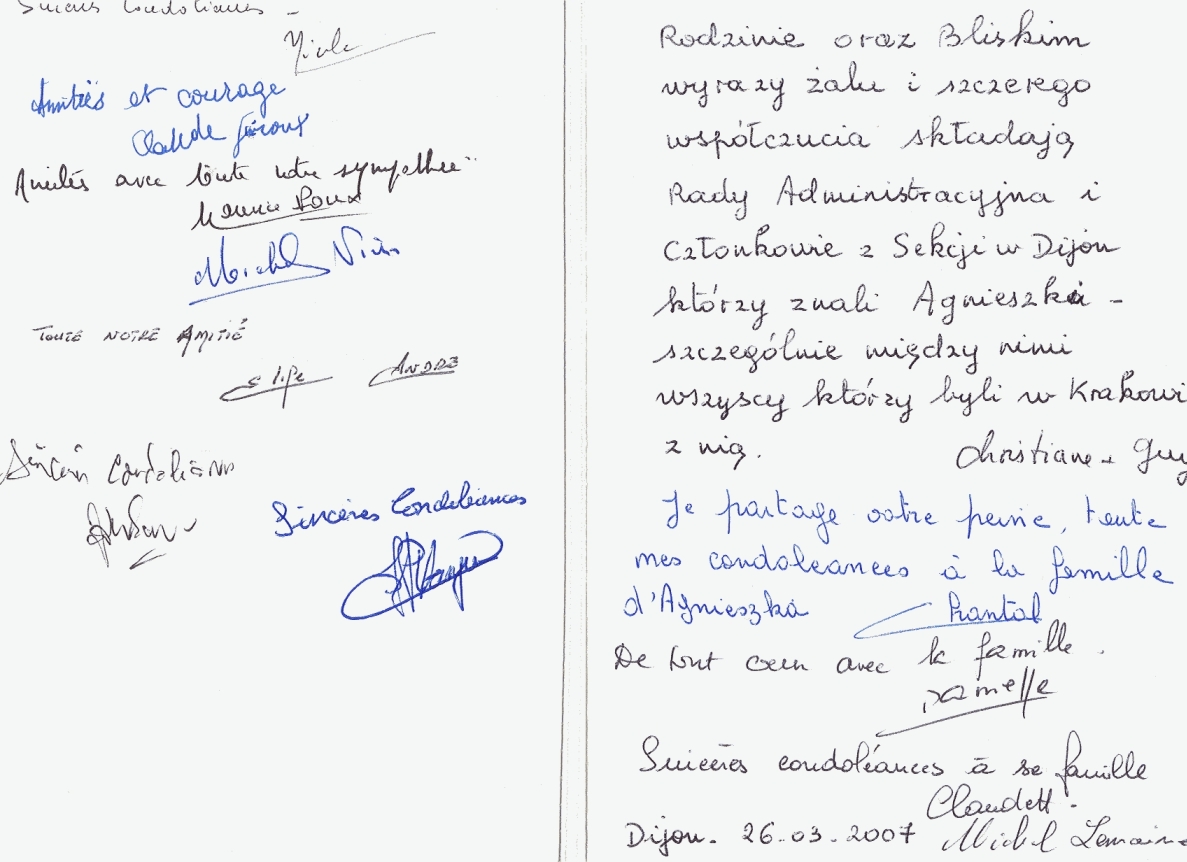 Sincères Condoléances -
Nicole
Amitiés et courage
Claude Giroux
Amitiés avec toute notre sympathie
Maurice Roux
Michel
TOUTE NOTRE AMITIÉ
ANDRÉ
Sincères Condoléances
Rodzinie oraz Bliskim
wyrazy żalu i szczerego
współczucia składają
Rady Administracyjna i
Członkowie z Sekcji w Dijon
którzy znali Agnieszka -
szczególnie między nimi
wszyscy którzy byli w Krakowi
z nią. Christiane + Guy
Je partage votre peine, toute
mes condoleances à la famille
d'Agnieszka Chantal
De tout cœur avec la famille.
Sincères condoléances à se famille
Claudett.
Dijon. 26.03.2007 Michel Lemaine